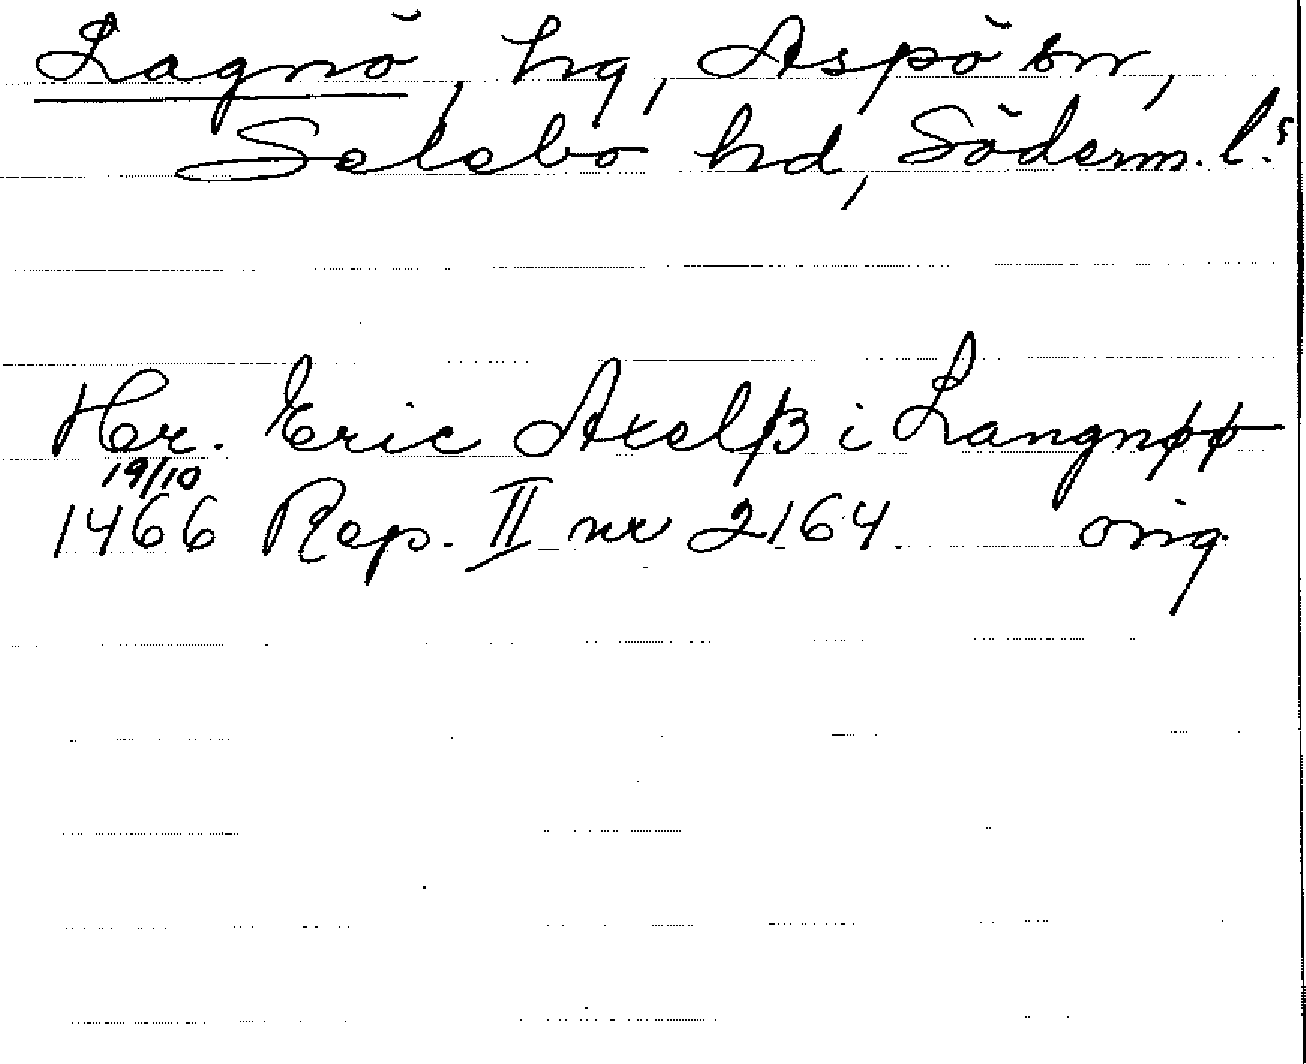 Lagnö, hg, Aspö sn,
Selebo hd, Söderm. l:s
Her. Eric Axelß i Langnøø
19/10
1466 Rep. II nr 2164 orig